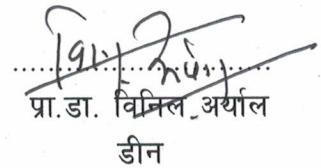 प्रा.डा. विनिल अर्याल
डीन